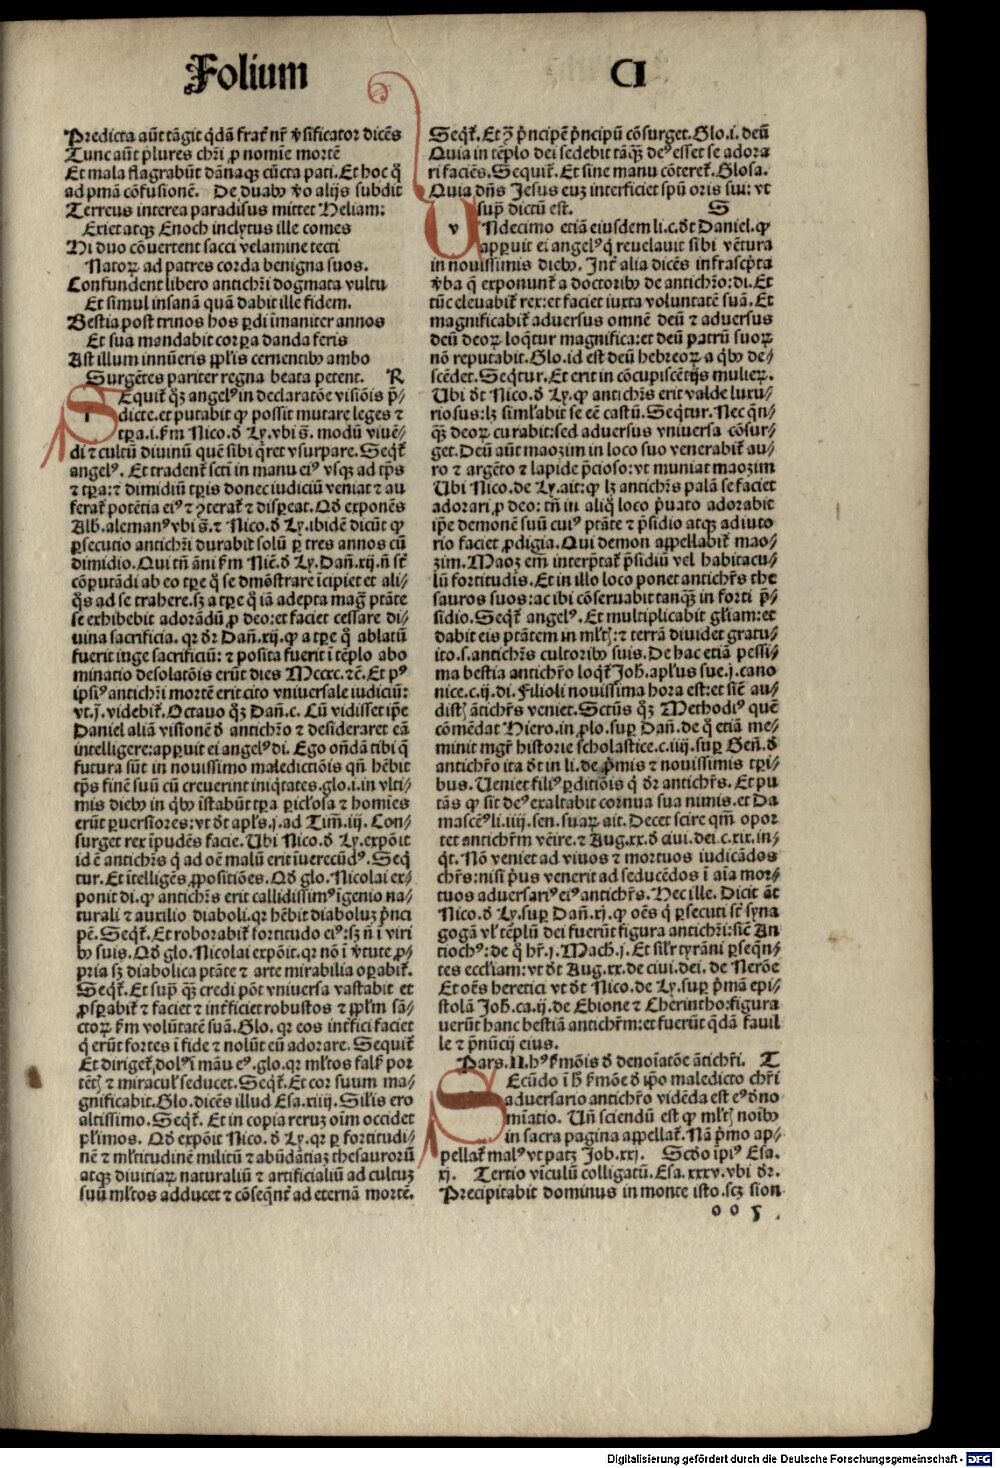 Folium CI
Predicta aūt tāgit q̄dā frat̄ nr̄ v̓sificator dicēs
Tunc aūt plures chr̄i ꝓ nomīe mortē
Et mala flagrabūt dānaqꝫ cūcta pati. Et hoc q̊
ad pmā cōfusionē. De duabꝰ v̓o alijs subdit
Terreus interea paradisus mittet Heliam:
Exiet atqꝫ Enoch inclytus ille comes
Hi duo cōuertent sacci velamine tecti
Natoꝝ ad patres corda benigna suos.
Confundent libero antichr̄i dogmata vultu
Et simul insanā quā dabit ille fidem.
Bestia post trinos hos ꝑdi īmaniter annos
Et sua mandabit corꝑa danda feris
Ast illum innūeris ppl̓is cernentibꝰ ambo
Surgētes pariter regna beata petent. R
SEquit̄ qꝫ angelꝰ in declaratōe visiōis p̄-
dicte. et putabit ꝙ possit mutare leges ⁊
tꝑa. i. ẜm Nico. ð Ly. vbi s̄. modū viuē/
di ⁊ cultū diuinū quē sibi q̄ret vsurpare. Seqt̄
angelꝰ. Et tradent̄ sctī in manu eiꝰ vsqꝫ ad tp̄s
⁊ tꝑa: ⁊ dimidiū tꝑis donec iudiciū veniat ⁊ au
ferat̄ potētia eiꝰ ⁊ ꝯterat̄ ⁊ disꝑeat. Qð exponēs
Alb. alemanꝰ vbi s̄. ⁊ Nico. ð Ly. ibidē dicūt ꝙ
ꝑsecutio antichr̄i durabit solū ꝑ tres annos cū
dimidio. Qui tn̄ āni ẜm Nic̄. ð Ly. Dan̄. xij. n̄ st̄
cōputādi ab eo tꝑe q̊ se dmōstrare īcipiet et ali/
q̊s ad se trahere. sꝫ a tꝑe q̊ iā adepta maḡ ptāte
se exhibebit adorādū ꝓ deo: et faciet cessare di/
uina sacrificia. qꝛ ðr Dan̄. xij. ꝙ a tꝑe q̊ ablatū
fuerit iuge sacrificiū: ⁊ posita fuerit ī tēplo abo
minatio desolatōis erūt dies Mccxc. ⁊c̄. Et pꝰ
ipsiꝰ antichr̄i mortē erit cito vniuersale iudiciū:
vt. j. videbit̄. Octauo qꝫ Dan̄. c. Cū vidisset ip̄e
Daniel aliā visionē ð antichr̄o ⁊ desideraret eā
intelligere: apꝑuit ei angelꝰ di. Ego on̄dā tibi q̄
futura sūt in nouissimo maledictiōis qn̄ hēbit
tp̄s finē suū cū creuerint iniq̄tates. glo. i. in vlti-
mis diebꝰ in q̄bꝰ īstabūt tꝑa ꝑicl̓osa ⁊ homīes
erūt ꝑuersiores: vt ðt apl̓s. j. ad Tim̄. iij. Con-
surget rex īpudēs facie. Ubi Nico. ð Ly. expōit
id ē antichr̄s q̄ ad oē malū erit īuerecūdꝰ. Seq̄
tur. Et ītelligēs ꝓpositiōes. Qð glo. Nicolai ex-
ponit di. ꝙ antichr̄s erit callidissimꝰ īgenio na-
turali ⁊ auxilio diaboli. qꝛ hēbit diaboluꝫ p̄nci
pē. Seqt̄. Et roborabit̄ fortitudo eiꝰ: sꝫ n̄ ī viri
bꝰ suis. Qð glo. Nicolai expōit. qꝛ nō ī v̓tute ꝓ-
pria sꝫ diabolica ptāte ⁊ arte mirabilia oꝑabit̄.
Seqt̄. Et sup̄ qꝫ credi pōt vniuersa vastabit et
ꝓsꝑabit̄ ⁊ faciet ⁊ int̓ficiet robustos ⁊ ppl̓m sā-
ctoꝝ ẜm volūtatē suā. Glo. qꝛ eos int̓fici faciet
q̄ erūt fortes ī fide ⁊ nolūt eū adorare. Sequit̄
Et diriget̄ dolꝰ ī māu eiꝰ. glo. qꝛ ml̓tos fals̄ por
tētꝭ ⁊ miracul̓ seducet. Seqt̄. Et cor suum ma-
gnificabit. Glo. dicēs illud Esa. xiiij. Sil̓is ero
altissimo. Seqt̄. Et in copia reruꝫ oīm occidet
pl̓imos. Qð expōit Nico. ð Ly. qꝛ ꝑ fortitudi-
nē ⁊ ml̓titudinē militū ⁊ abūdātiaꝫ thesauroꝝ
atqꝫ diuitiaꝝ naturaliū ⁊ artificialiū ad cultuꝫ
suū ml̓tos adducet ⁊ cōseqnt̓ ad eternā mortē.
Seqt̄. Et ꝯ p̄ncipē p̄ncipū cōsurget. Glo. i. deū
Quia in tēplo dei sedebit tāqꝫ deꝰ esset se adora
ri faciēs. Sequit̄. Et sine manu cōteret̄. Glosa.
Quia dn̄s Jesus euꝫ interficiet spū oris sui: vt
sup̄ dictū est. S
UNdecimo etiā eiusdem li. c. ðt Daniel. ꝙ
apꝑuit ei angelꝰ q̄ reuelauit sibi vētura
in nouissimis diebꝰ. Int̓ alia dicēs infrascp̄ta
v̓ba q̄ exponunt̄ a doctoribꝰ de antichr̄o: di. Et
tūc eleuabit̄ rex: et faciet iuxta voluntatē suā. Et
magnificabit̄ aduersus omnē deū ⁊ aduersus
deū deoꝝ loq̄tur magnifica: et deū patrū suoꝝ
nō reputabit. Glo. id est deū hebreoꝝ a q̄bꝰ de-
scēdet. Seq̄tur. Et erit in cōcupiscētijs mulieꝝ.
Ubi ðt Nico. ð Ly. ꝙ antichr̄s erit valde luxu/
riosus: lꝫ siml̓abit se eē castū. Seq̄tur. Nec qn̄-
qꝫ deoꝝ curabit: sed aduersus vniuersa cōsur/
get. Deū aūt maozim in loco suo venerabit̄ au/
ro ⁊ argēto ⁊ lapide p̄cioso: vt muniat maozim
Ubi Nico. de Ly. ait: ꝙ lꝫ antichr̄s palā se faciet
adorari ꝓ deo: tn̄ in aliq̊ loco p̄uato adorabit
ip̄e demonē suū cuiꝰ ptāte ⁊ p̄sidio atqꝫ adiuto
rio faciet ꝓdigia. Qui demon appellabit̄ mao/
zim. Maoz em̄ interp̄tat̄ p̄sidiū vel habitacu/
lū fortitudis. Et in illo loco ponet antichr̄s the
sauros suos: ac ibi cōseruabit tanqꝫ in forti p̄-
sidio. Seqt̄ angelꝰ. Et multiplicabit gl̓iam: et
dabit eis ptātem in ml̓tꝭ: ⁊ terrā diuidet gratu/
ito. s. antichr̄s cultoribꝰ suis. De hac etiā pessi/
ma bestia antichr̄o loqt̄ Joh. apl̓us sue. j. cano
nice. c. ij. di. Filioli nouissima hora est: et sic̄ au/
distꝭ āticħrs veniet. Sctūs qꝫ Methodiꝰ quē
cōmēdat Hiero. in ꝓlo. suꝑ Dan̄. de q̊ etiā me/
minit mgr̄ historie scholastice. c. iiij. suꝑ Gen̄. ð
antichr̄o ita ðt in li. de p̄mis ⁊ nouissimis tꝑi/
bus. Ueniet filiꝰ ꝑditiōis q̄ ðr antichr̄s. Et pu
tās ꝙ sit deꝰ exaltabit cornua sua nimis. et Da
mascēꝰ li. iiij. sen. suaꝝ ait. Decet scire qm̄ opor
tet antichr̄m vēire. ⁊ Aug. xx. ð ciui. dei. c. xix. in-
q̄t. Nō veniet ad viuos ⁊ mortuos iudicādos
chr̄s: nisi p̄us venerit ad seducēdos ī aīa mor/
tuos aduersariꝰ eiꝰ antichr̄s. Hec ille. Dicit āt
Nico. ð Ly. suꝑ Dan̄. xj. ꝙ oēs q̄ ꝑsecuti st̄ syna
gogā vl̓ tēplū dei fuerūt figura antichr̄i: sic̄ An
tiochꝰ: de q̊ hr̄. j. Mach. j. Et sil̓r tyrāni ꝑseqn̄-
tes eccl̓iam: vt ðt Aug. xx. de ciui. dei. de Nerōe
Et oēs heretici vt ðt Nico. de Ly. suꝑ p̄mā epi-
stolā Joh. ca. ij. de Ebione ⁊ Cherintho: figura
uerūt hanc bestiā antichr̄m: et fuerūt q̄dā fauil
le ⁊ p̄nūcij eius.
Pars. II. hꝰ ẜmōis ð denoīatōe ātichr̄i. T
SEcūdo ī ħ ẜmōe ð ip̄o maledicto chr̄i
aduersario antichr̄o vidēda est eꝰ ðno
mīatio. Un̄ sciendū est ꝙ ml̓tꝭ noībꝰ
in sacra pagina appellat̄. Nā p̄mo ap-/
pellat̄ malꝰ vt patꝫ Job. xxj. Scðo īpiꝰ Esa.
xj. Tertio vīculū colligatū. Esa. xxxv. vbi ðr.
Precipitabit dominus in monte isto. scꝫ sion
oo 5
Digitalisierung gefördert durch die Deutsche Forschungsgemeinschaft - DFG